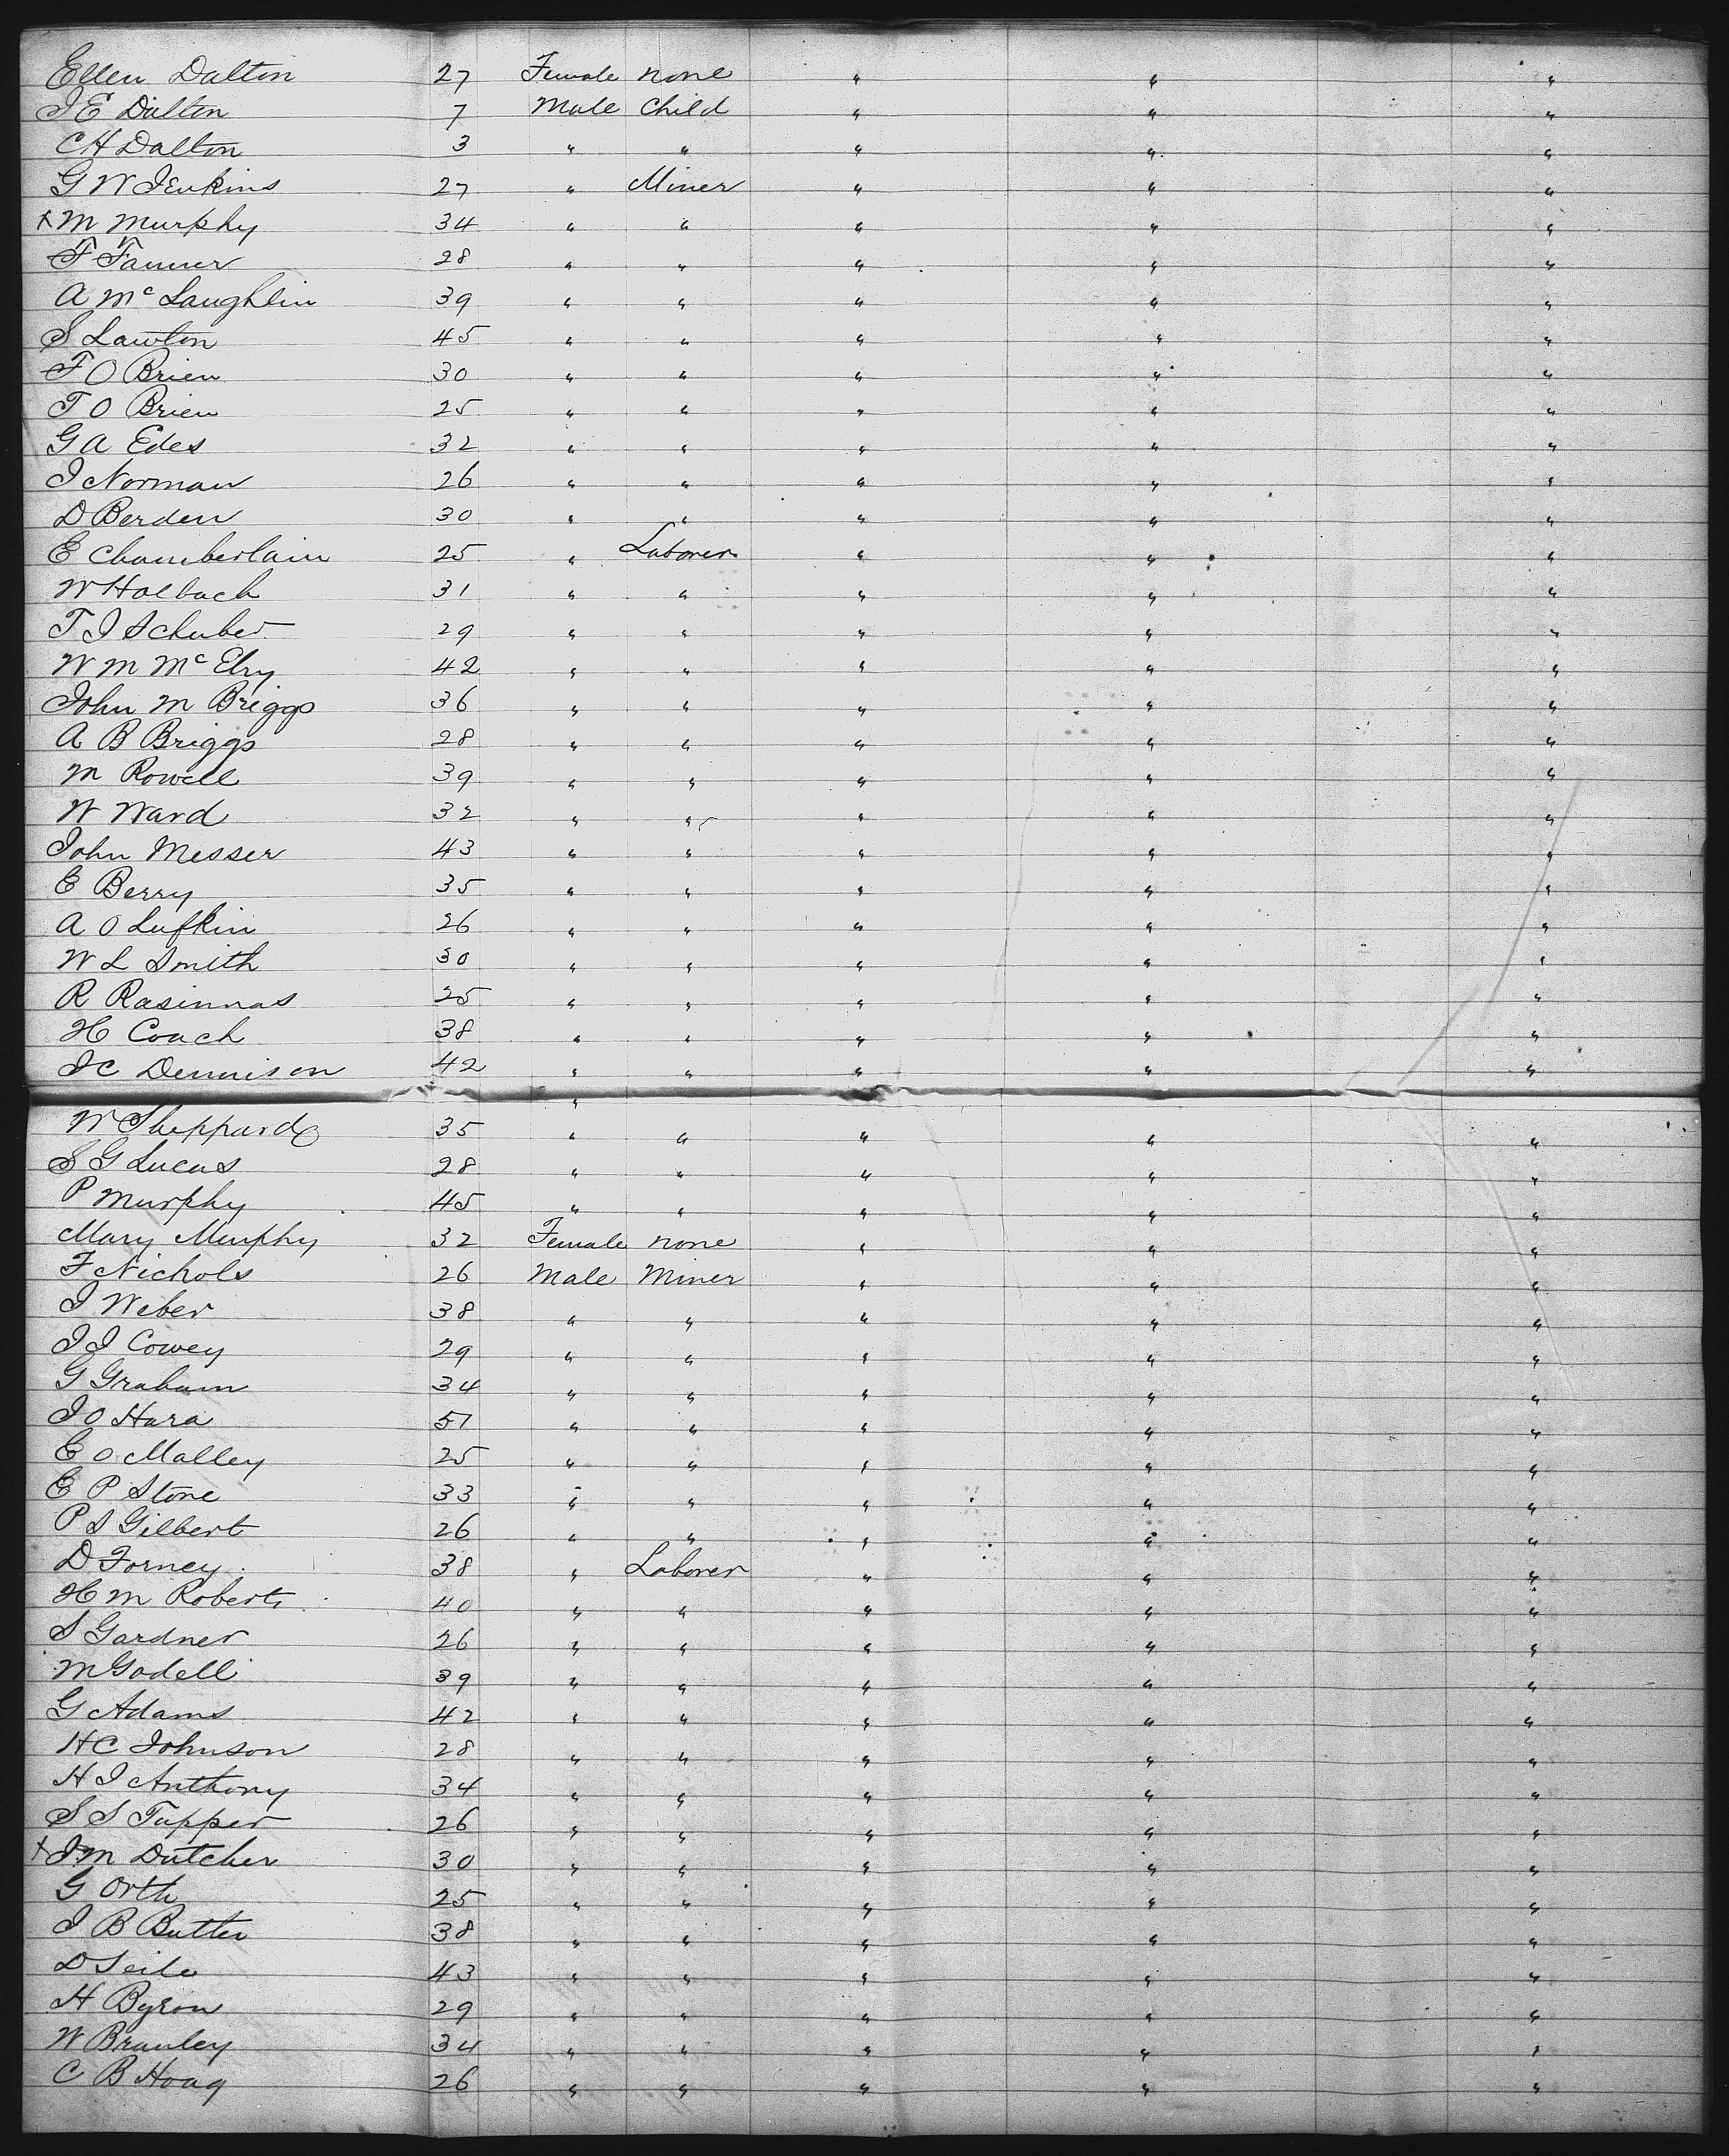 Ellen Dalton 27 Female none " " "
J E Dalton 7 Male Child " " "
C H Dalton 3 " " " " "
G W Jenkins 27 " Miner " " "
x M Murphy 34 " " " " "
F Fanner 28 " " " " "
A McLaughlin 39 " " " " "
S Lawton 45 " " " " "
F O Brien 30 " " " " "
T O Brien 25 " " " " "
G A Edes 32 " " " " "
J Norman 26 " " " " "
D Berden 30 " " " " "
E Chamberlain 25 " Laborer " " "
W Holbach 31 " " " " "
T J Schuber 29 " " " " "
W M McElry 42 " " " " "
John M Briggs 36 " " " " "
A B Briggs 28 " " " " "
M Rowell 39 " " " " "
W Ward 32 " " " " "
John Messer 43 " " " " "
E Berry 35 " " " " "
A O Lufkin 26 " " " " "
W L Smith 30 " " " " "
R Rasinnas 25 " " " " "
H Coach 38 " " " " "
J C Dennison 42 " " " " "
"
W Sheppard 35 " " " " "
S G Lucas 28 " " " " "
P Murphy 45 " " " " "
Mary Murphy 32 Female none " " "
F Nichols 26 Male Miner " " "
J Weber 38 " " " " "
J J Cowey 29 " " " " "
G Graham 34 " " " " "
J O Hara 51 " " " " "
E O Malley 25 " " " " "
E P Stone 33 " " " " "
P S Gilbert 26 " " " " "
D Forney 38 " Laborer " " "
H M Roberts 40 " " " " "
S Gardner 26 " " " " "
M Godell 39 " " " " "
G Adams 42 " " " " "
H C Johnson 28 " " " " "
H J Anthony 34 " " " " "
S S Tupper 26 " " " " "
x J M Dutcher 30 " " " " "
G Orth 25 " " " " "
J B Butter 38 " " " " "
D Seile 43 " " " " "
H Byron 29 " " " " "
W Branley 34 " " " " "
C B Hoag 26 " " " " "